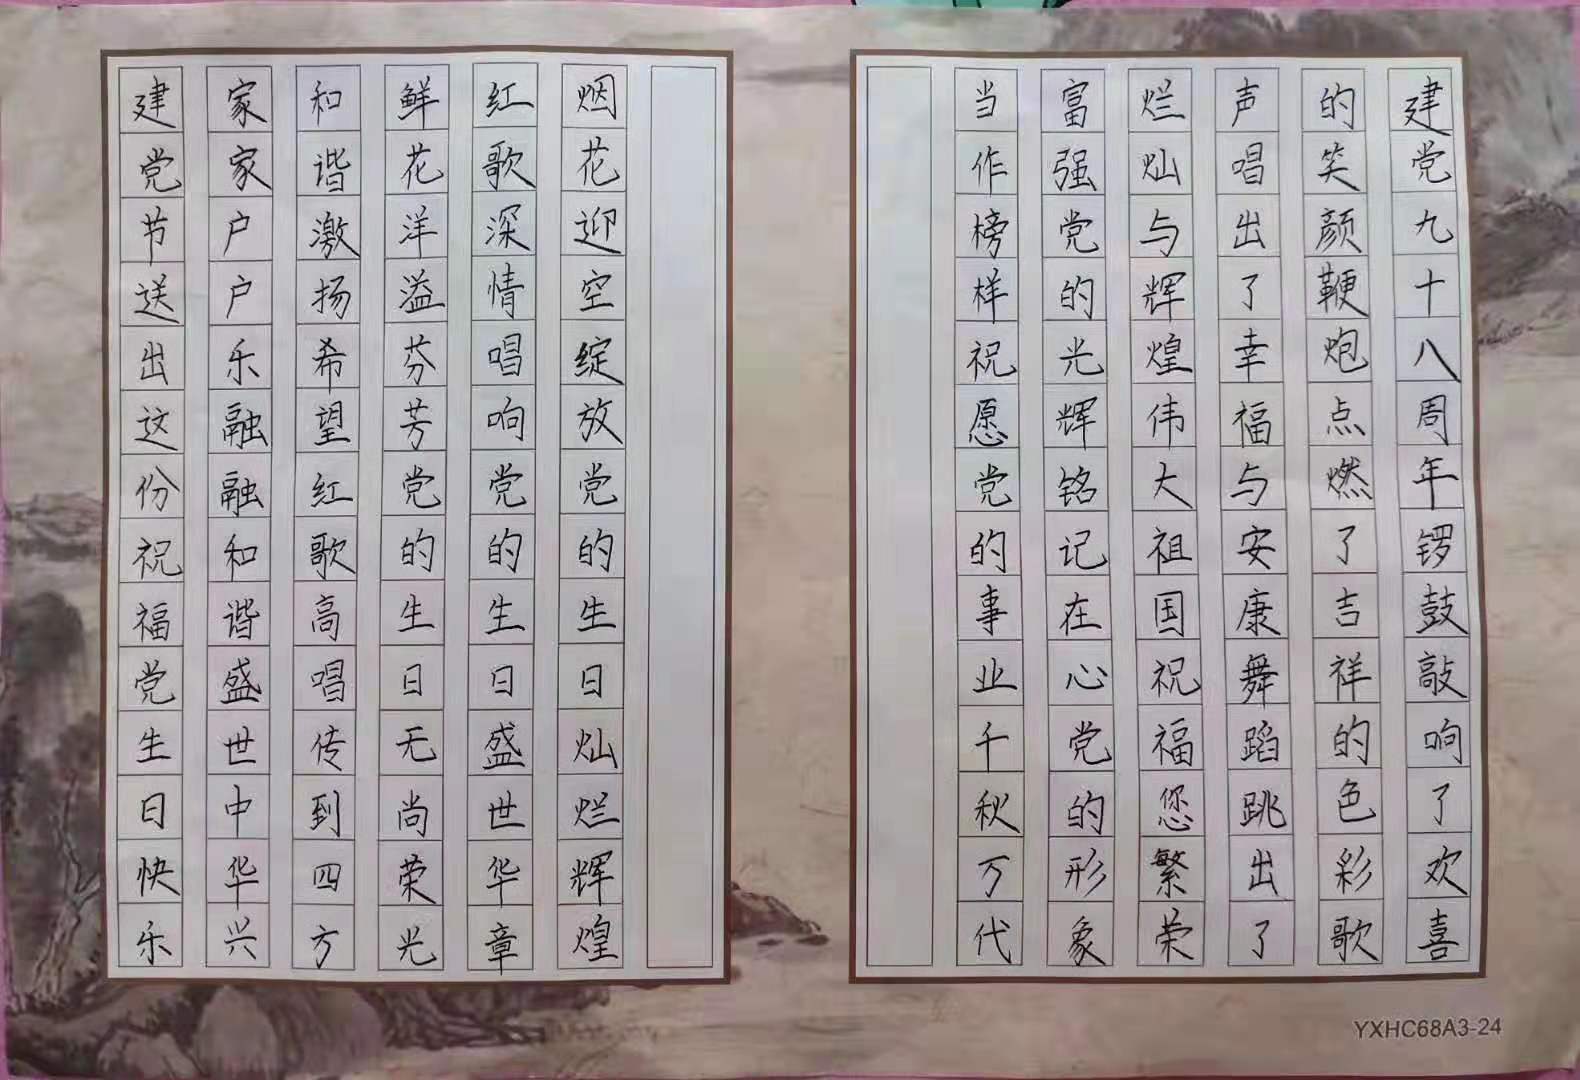 建党九十八周年锣鼓敲响了欢喜
的笑颜鞭炮点燃了吉祥的色彩歌
声唱出了幸福与安康舞蹈跳出了
烂灿与辉煌伟大祖国祝福您繁荣
富强党的光辉铭记在心党的形象
当作榜样祝愿党的事业千秋万代
烟花迎空绽放党的生日灿烂辉煌
红歌深情唱响党的生日盛世华章
鲜花洋溢芬芳党的生日无尚荣光
和谐激扬希望红歌高唱传到四方
家家户户乐融融和谐盛世中华兴
建党节送出这份祝福党生日快乐
YXHC68A3-24